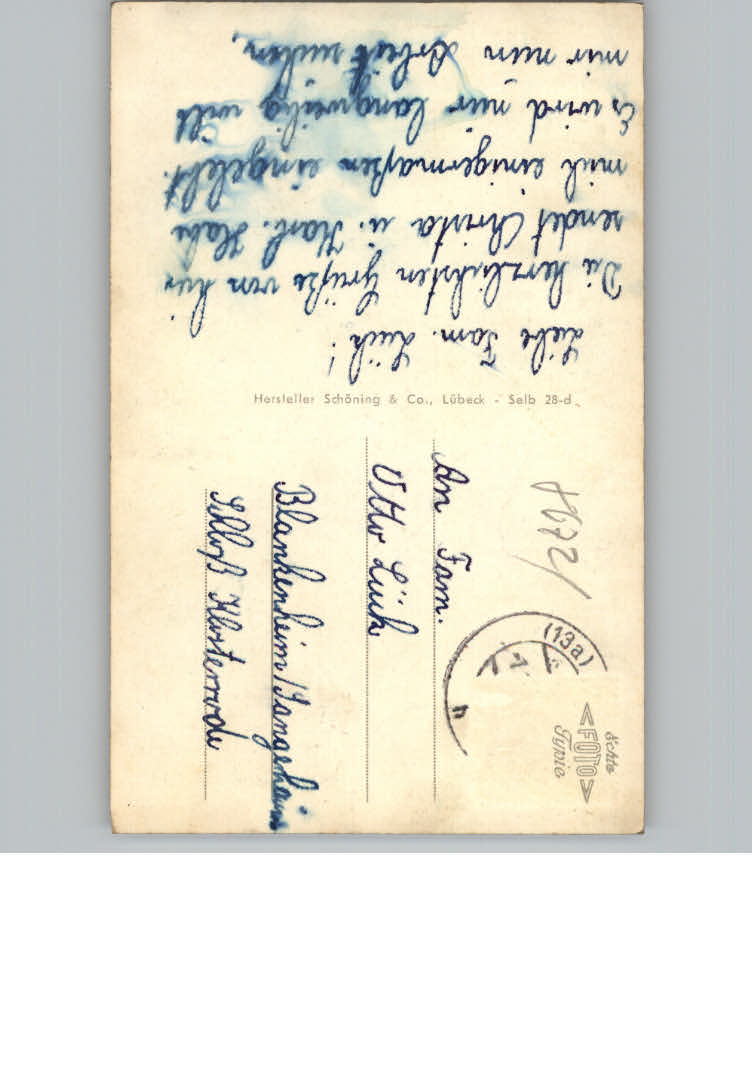 Liebe Fam. Lüch!
Die herzlichsten Grüße von hier
sendet Christa u. Karl. Habe
mich einigermaßen eingelebt.
Es wird nur langweilig will
mir nun Arbeit suchen.
Hersteller Schöning & Co., Lübeck - Selb 28-d
An Fam.
Otto Lüch
Blankenheim/Sangerhausen
Schloß Klosterrode
(13a)
h
Echte
<FOTO>
Typie